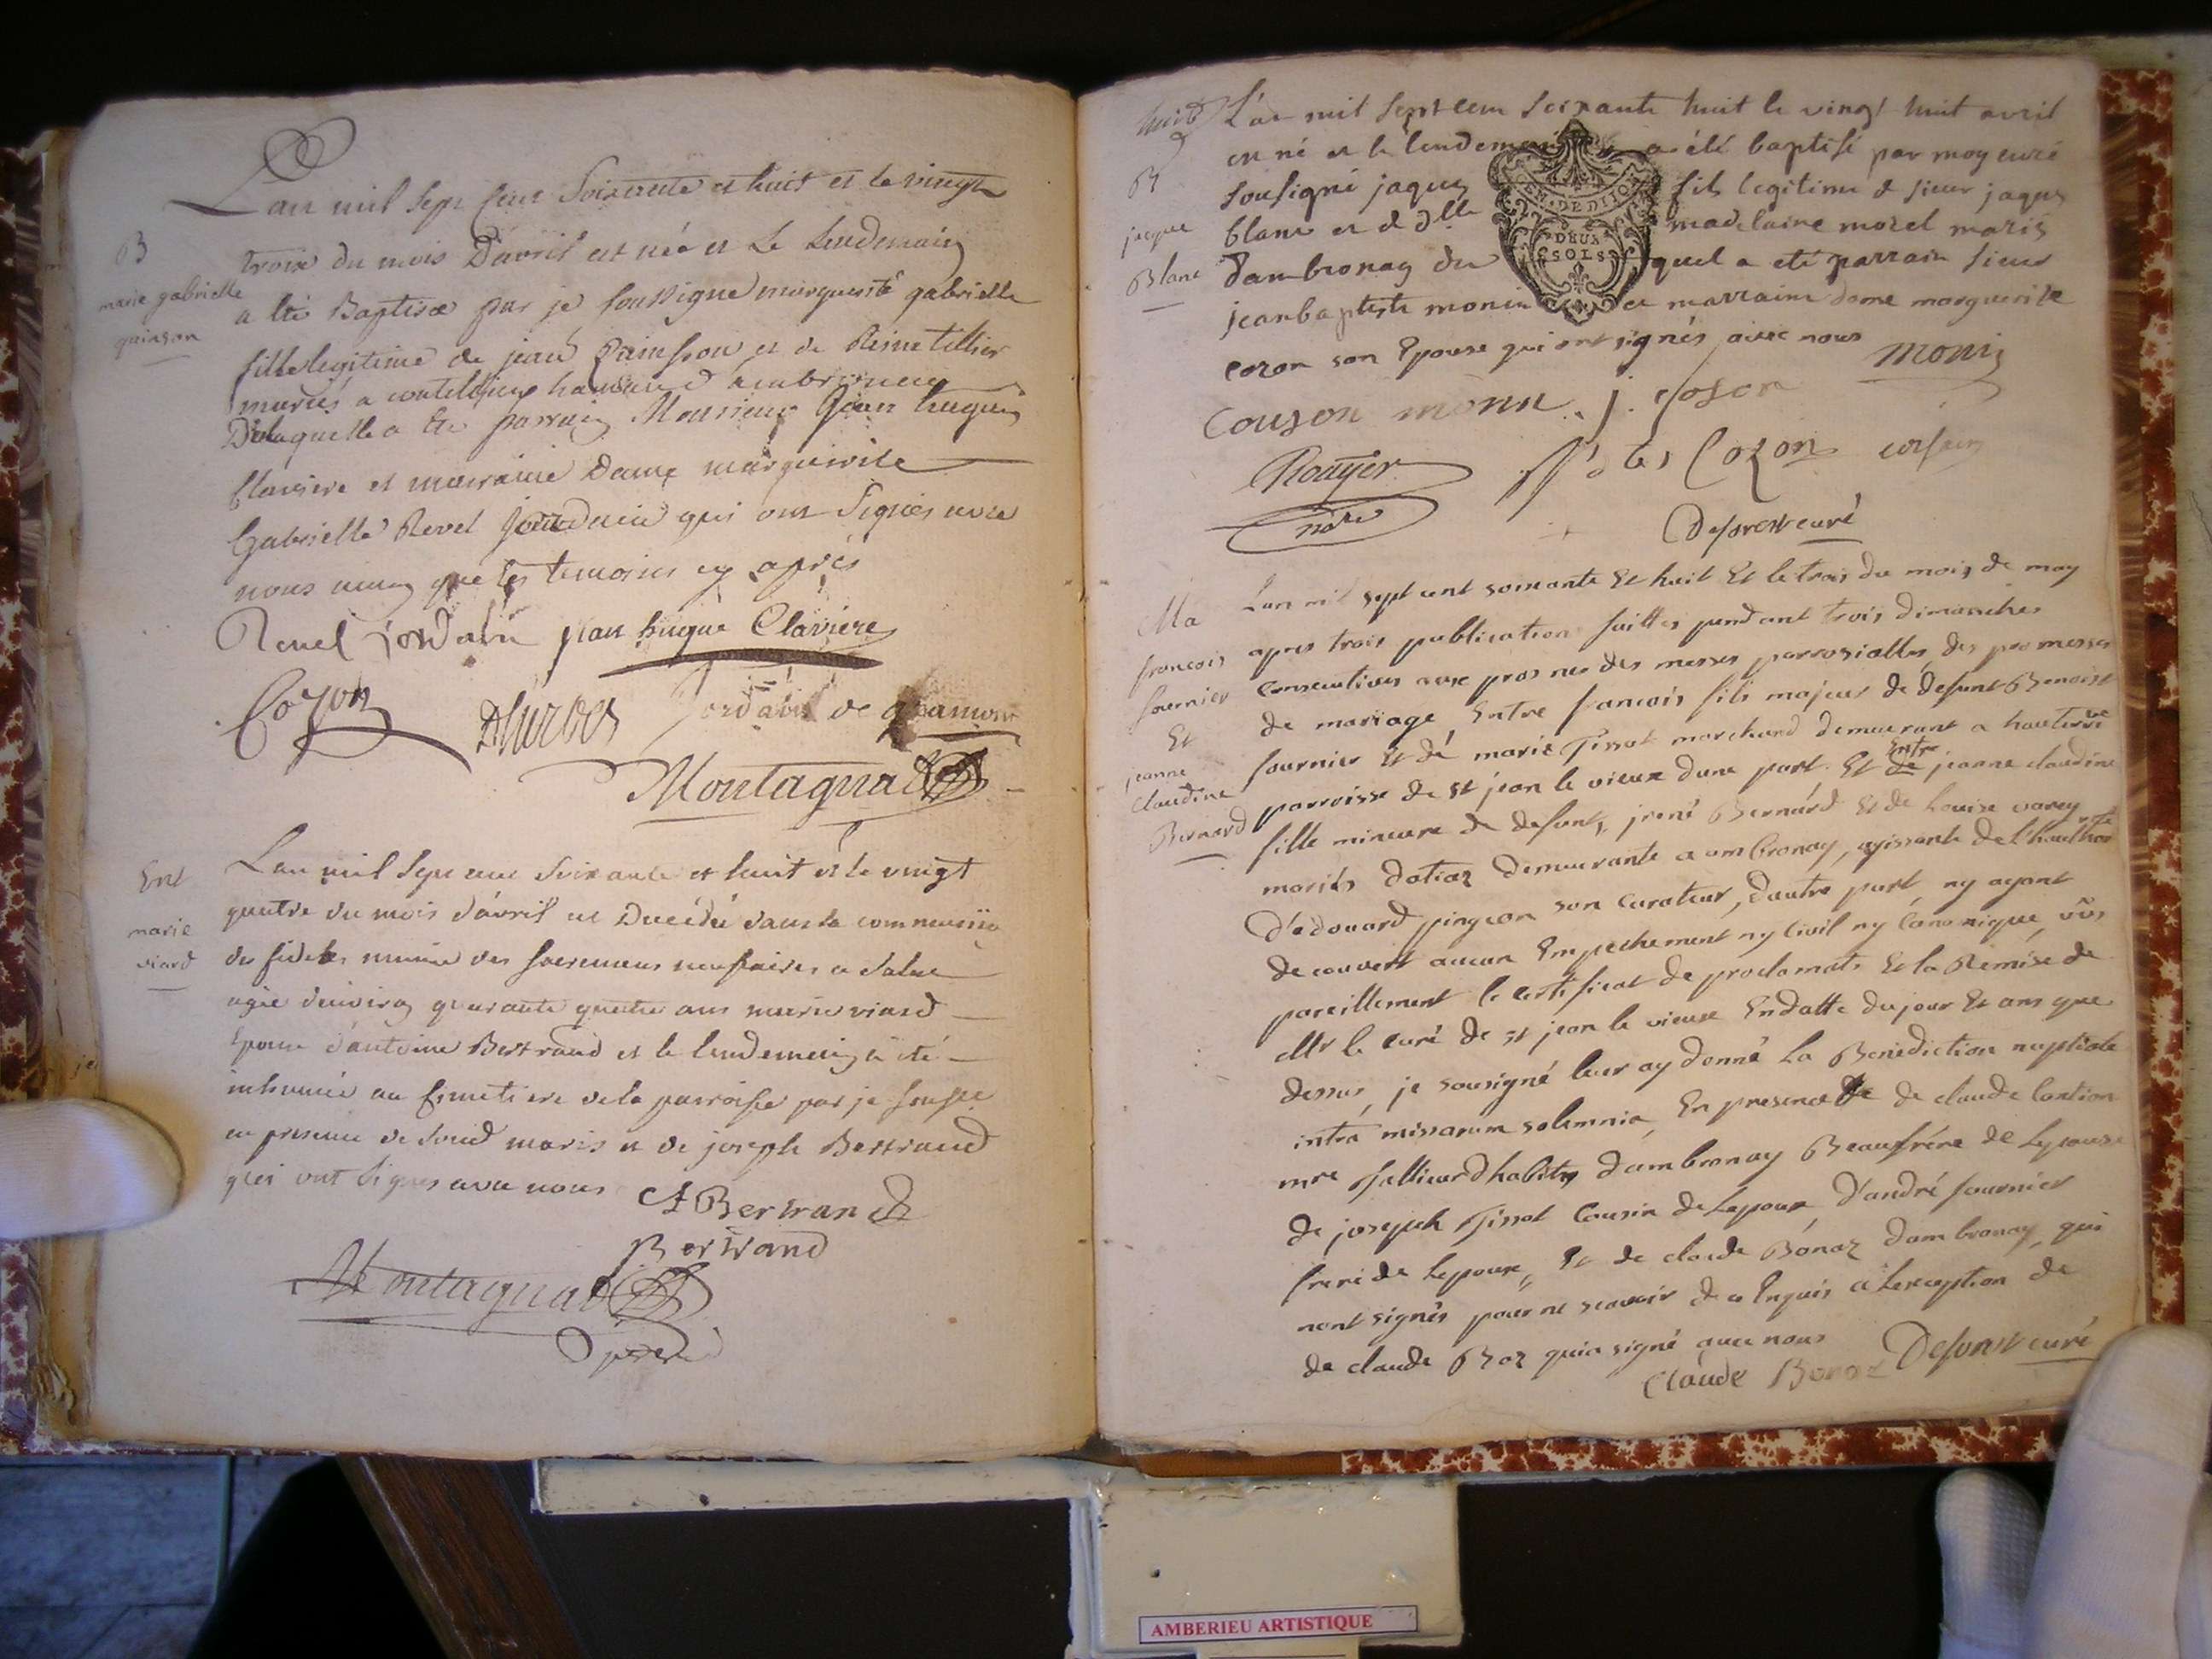 L'an mil sept cent soixante et huit et le vingt
B
troix du mois D'avril est née et Le lendemain
marie gabrielle
quinson
a été Baptisée par je soussigné marguerite gabrielle
fille legitime de jean quinsson et de Reine tillier
mariés a hameau d'ambronay
De laquelle a été parrain Monsieur Jean hugue
Claviere et marraine Dame marguerite
Gabrielle Revel Jourdain qui ont Signés avec
nous ainsy que les temoins cy après
Revel jordain jean hugue Claviere
Cozon Dhurdes Jordain de gramont
Montagnat
Ent
marie
viard
Lan mil sept cent soixante et huit et le vingt
quatre du mois d'avril est Decédée dans la communion
des fideles munie des sacremens necessaires a salut
agée d'environ quarante quatre ans marie viard
Epouse d'antoine Bertrand et le lendemain a été
inhumée au cimetiere de la parroisse par je soussé
en presence de sond maris et de joseph Bertrand
qui ont signés avec nous A Bertrand
Bertrand
Montagnat
huit
B
jaque
Blanc
L'an mil sept cent soixante huit le vingt huit avril
est né et le lendemain a été baptisé par moy curé
sousigné jaques fils legitime de sieur jaques
blanc et de dlle madelaine morel mariés
d'ambronay du quel a eté parrain sieur
jean baptiste monin et marraine dame marguerite
cozon son Epouse qui ont signés avec nous
monin
couzon monin j. cozon
GEN. DE DIJON
DEUX
SOLS
Rouyer Cozon
nore
Deforest curé
Ma
francois
fournier
Et
jeanne
claudine
Bernard
Lan mil sept cent soixante Et huit Et le trois du mois de may
apres trois publications faittes pendant trois dimanches
consecutives aux prosnes des messes parrosialles des promesses
de mariage, Entre francois fils majeur de defunt Benoist
fournier Et de marie Tissot marchand demeurant a hauterive
parroisse de st jean le vieux dune part. Et Entre jeanne claudine
fille mineure de defunt, jrené Bernard Et de Louise varey
mariés dotiaz demeurante a ambronay, agissante de l'hauthorité
D'édouard pingeon son curateur, dautre part, ny ayant
decouvert aucun Empechement ny civil ny canonique, vûs
pareillement le certificat de proclamats Et la Remise de
Mr le curé de st jean le vieux En datte du jour Et ans que
dessus, je sousigné leur ay donné La Benediction nuptiale
intra missarum solemnia, En presence de claude
mre habitt Dambronay Beaufrére de Lepouse
de joseph Tissot Cousin de Lepoux D'andré fournier
frere de Lepoux, Et de claude Bonaz dambronay, qui
nont signés pour ne scavoir de ce Enquis a Lexception de
de claude Boz qui a signé avec nous
Claude Bonaz Deforest curé
AMBERIEU ARTISTIQUE